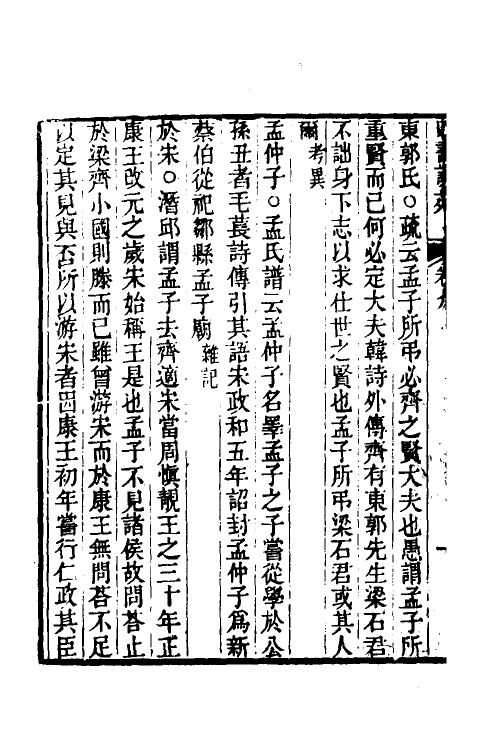 東郭氏○疏云孟子所弔必齊之賢大夫也愚謂孟子所
重賢而已何必定大夫韓詩外傳齊有東郭先生梁石君
不詘身下志以求仕世之賢也孟子所弔梁石君或其人
爾考異
孟仲子○孟氏譜云孟仲子名睪孟子之子嘗從學於公
孫丑者毛萇詩傳引其語宋政和五年詔封孟仲子爲新
蔡伯從祀鄒縣孟子廟雜記
於宋○潛邱謂孟子去齊適宋當周愼靚王之三十年正
康王改元之歲宋始稱王是也孟子不見諸侯故問荅止
於梁齊小國則滕而已雖曾游宋而於康王無問荅不足
以定其見與否所以游宋者因康王初年嘗行仁政其臣